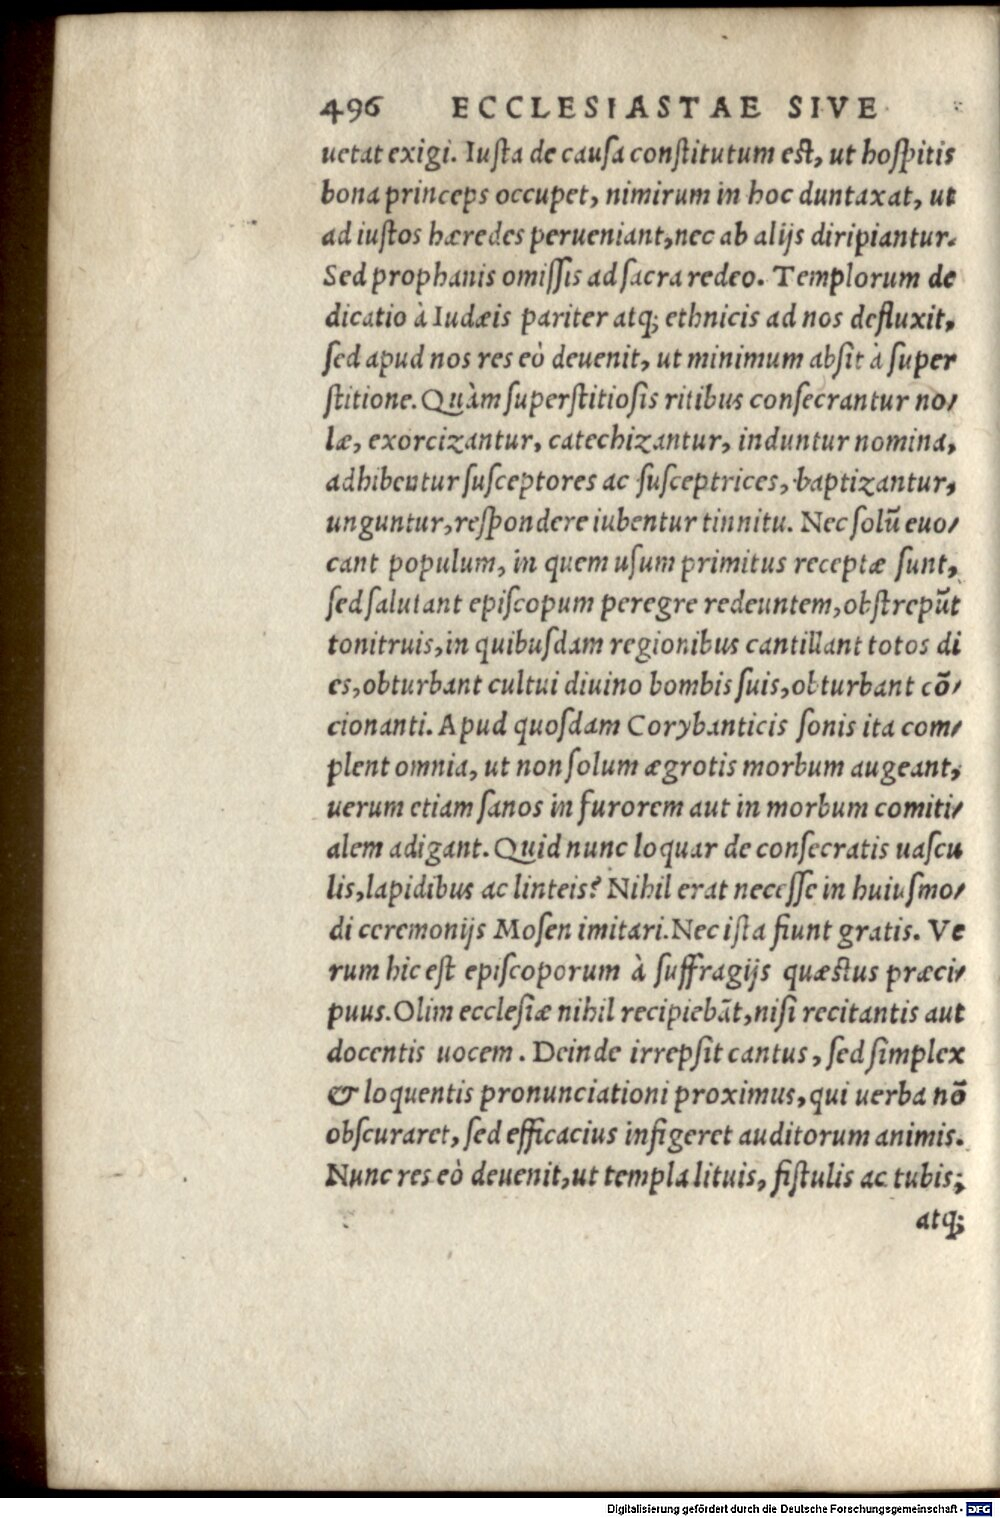 496 ECCLESIASTAE SIVE
uetat exigi. Iuſta de cauſa conſtitutum eſt, ut hoſpitis
bona princeps occupet, nimirum in hoc duntaxat, ut
ad iuſtos hæredes perueniant, nec ab alijs diripiantur.
Sed prophanis omiſſis ad ſacra redeo. Templorum de
dicatio à Iudæis pariter atq; ethnicis ad nos defluxit,
ſed apud nos res eò deuenit, ut minimum abſit à ſuper
ſtitione. Quàm ſuperſtitioſis ritibus conſecrantur no/
læ, exorcizantur, catechizantur, induntur nomina,
adhibentur ſuſceptores ac ſuſceptrices, baptizantur,
unguntur, reſpondere iubentur tinnitu. Nec ſolũ euo/
cant populum, in quem uſum primitus receptæ ſunt,
ſed ſalutant epiſcopum peregre redeuntem, obſtrepũt
tonitruis, in quibuſdam regionibus cantillant totos di
es, obturbant cultui diuino bombis ſuis, obturbant cõ/
cionanti. Apud quoſdam Corybanticis ſonis ita com/
plent omnia, ut non ſolum ægrotis morbum augeant,
uerum etiam ſanos in furorem aut in morbum comiti/
alem adigant. Quid nunc loquar de conſecratis uaſcu
lis, lapidibus ac linteis? Nihil erat neceſſe in huiuſmo/
di ceremonijs Moſen imitari. Nec iſta fiunt gratis. Ve
rum hic eſt epiſcoporum à ſuffragijs quæſtus præci/
puus. Olim eccleſiæ nihil recipiebãt, niſi recitantis aut
docentis uocem. Deinde irrepſit cantus, ſed ſimplex
& loquentis pronunciationi proximus, qui uerba nõ
obſcuraret, ſed efficacius infigeret auditorum animis.
Nunc res eò deuenit, ut templa lituis, fiſtulis ac tubis;
atq;
Digitalisierung gefördert durch die Deutsche Forschungsgemeinschaft - DFG